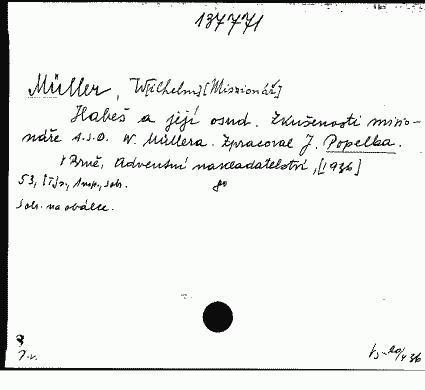 137771
Müller, W[ilhelm] [Misionář]
Habeš a její osud. Zkušenosti misio-
náře A.S.D. W. Müllera. Zpracoval J. Popelka.
V Brně, Adventní nakladatelství, [1936]
53, [1] s., 1 map., obr. 8°
obr. na obálce.